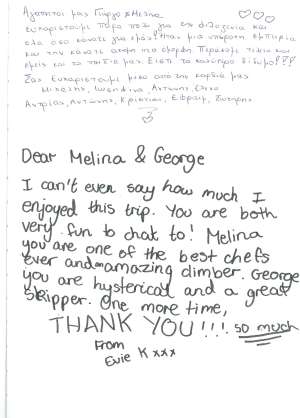 Αγαπητοί μας Γιώργο & Μελίνα
ευχαριστούμε πάρα πολύ για την φιλοξενία και
όλα όσα κάνατε για εμάς! Ήταν μια υπέροχη εμπειρία
και την κάνατε ακόμη πιο όμορφη. Περάσαμε τέλεια και
εμείς και τα παιδιά μας. Είστε το καλύτερο δίδυμο!!!
Σας ευχαριστούμε μέσα από την καρδιά μας
Μιχάλης, Αντώνης, Έλενα
Αντρέας, Αντώνης, Κρίστιαν, Εφραίμ, Σωτήρης
Dear Melina & George
I can't even say how much I
enjoyed this trip. You are both
very fun to chat to! Melina
you are one of the best chefs
ever and amazing climber. George
you are hysterical and a great
Skipper. One more time,
THANK YOU!!! so much
From
Evie K xxx